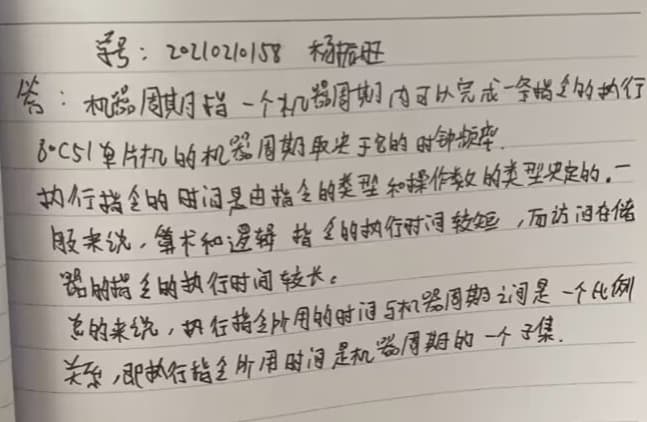 学号：20210210158 杨振旺
答：机器周期指一个机器周期内可以完成一条指令的执行
80C51单片机的机器周期取决于它的时钟频率.
执行指令的时间是由指令的类型和操作数的类型决定的.一
般来说，算术和逻辑指令的执行时间较短，而访问存储
器的指令的执行时间较长。
总的来说，执行指令所用的时间与机器周期之间是一个比例
关系，即执行指令所用时间是机器周期的一个子集.